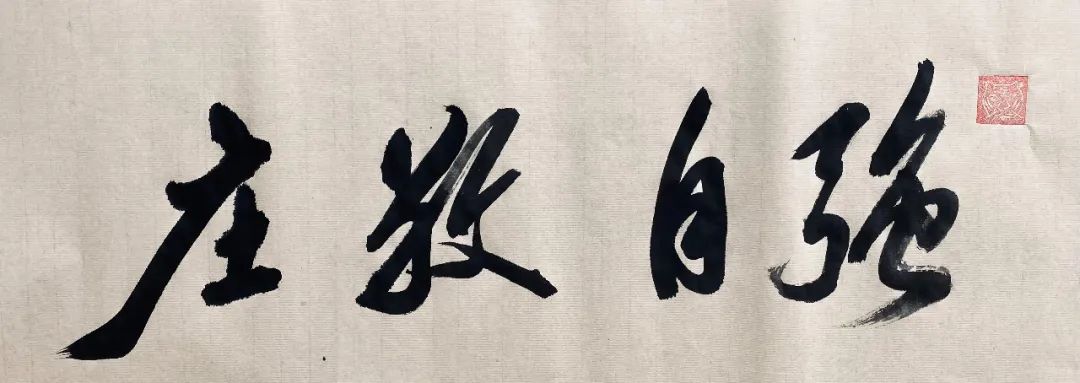 庄敬自强